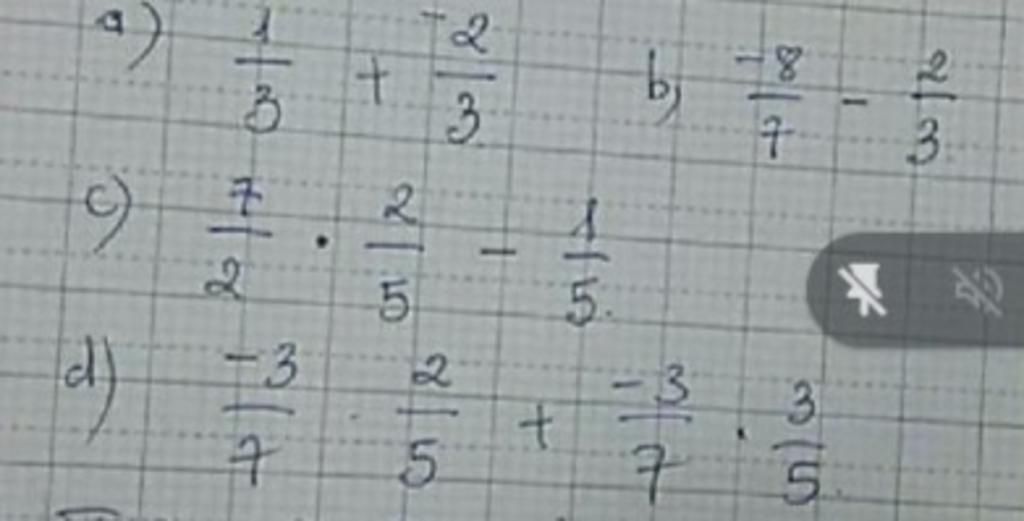 a) 1/3 + -2/3 b) -8/7 - 2/3
c) 7/2 . 2/5 - 1/5.
d) -3/7 . 2/5 + -3/7 . 3/5.